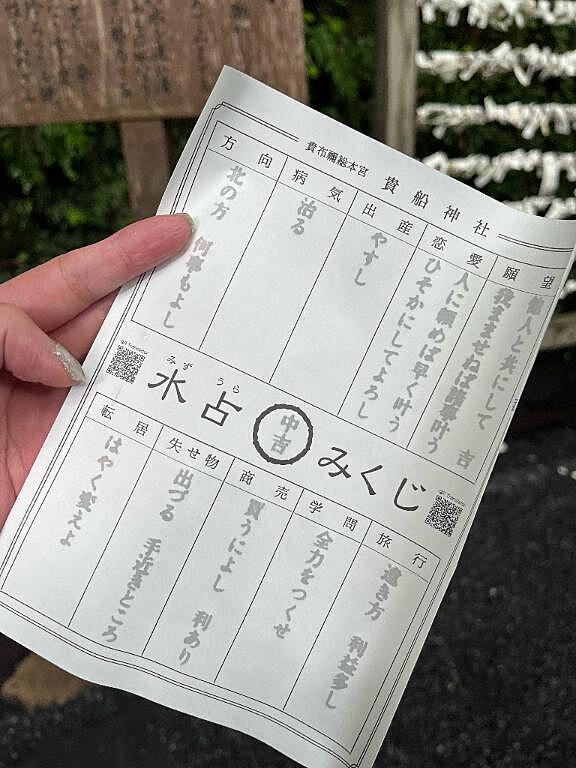 貴布禰総本宮 貴船神社
願望
他人と共にして
我ままませねば諸事叶う 吉
恋愛
人に頼めば早く叶う
ひそかにしてよろし
出産
やすし
病気
治る
方向
北の方 何事もよし
みず うら
水占みくじ
中吉
旅行
遠き方 利益多し
学問
全力をつくせ
商売
買うによし 利あり
失せ物
出づる 手近きところ
転居
はやく変えよ